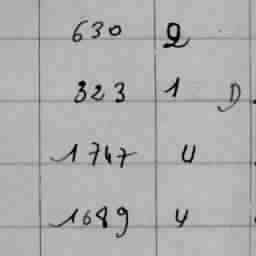 630 2
323 1 D
1747 4
1689 4